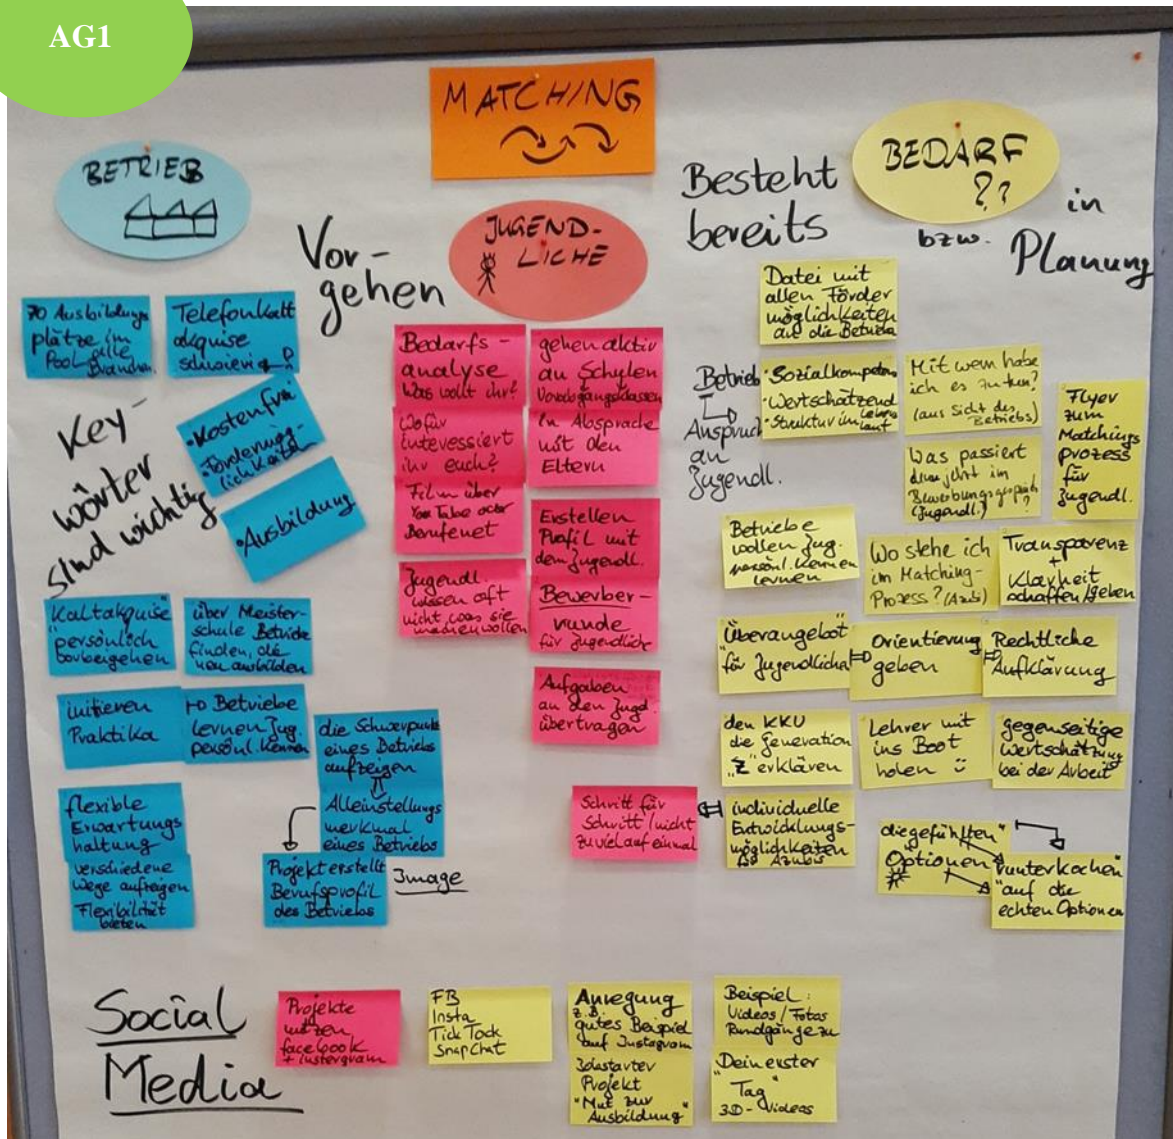 AG1
MATCHING
BETRIEB
Vor-
gehen
JUGEND-
LICHE
Besteht
bereits
BEDARF
??
bzw.
in
Planung
70 Ausbildungs
plätze im
Pool alle
Branchen
Telefonkalt
akquise
schwierig
Key-
wörter
sind wichtig
• Kostenfrei
• Förderungsmög-
lichkeiten
• Ausbildung
Kaltakquise
persönlich
vorbeigehen
über Meister-
schule Betriebe
finden, die
neu ausbilden
initiieren
Praktika
Betriebe
lernen Jug.
persönl. kennen
die Schwerpunkte
eines Betriebs
aufzeigen
Alleinstellungs
merkmal
eines Betriebs
Projekt erstellt
Berufsprofil
des Betriebs
Image
flexible
Erwartungs
haltung
verschiedene
Wege aufzeigen
Flexibilität
bieten
Bedarfs-
analyse
Was wollt ihr?
Wofür
interessiert
ihr euch?
Film über
YouTube oder
Berufenet
Jugendl.
wissen oft
nicht, was sie
machen wollen
gehen aktiv
an Schulen
Vorabgangsklassen
in Absprache
mit den
Eltern
Erstellen
Profil mit
dem Jugendl.
Bewerber-
runde
für Jugendliche
Aufgaben
an den Jugd.
übertragen
Schritt für
Schritt / nicht
zuviel auf einmal
Datei mit
allen Förder
möglichkeiten
an die Betriebe
Betrieb
Anspruch
an
Jugendl.
• Sozialkompetenz
• Wertschätzend
• Struktur im Lebens
lauf
Mit wem habe
ich es zu tun?
(aus Sicht des
Betriebs)
Was passiert
denn jetzt im
Bewerbungsgespräch
(Jugendl.) ?
Flyer
zum
Matchings
prozess
für
Jugendl.
Betriebe
wollen Jug.
persönl. kennen
lernen
Wo stehe ich
im Matching-
Prozess? (Azubi)
Transparenz
+
Klarheit
schaffen/geben
"Überangebot"
für Jugendliche
Orientierung
geben
Rechtliche
Aufklärung
den KKU
die Generation
"Z" erklären
Lehrer mit
ins Boot
holen ü
gegenseitige
Wertschätzung
bei der Arbeit
individuelle
Entwicklungs-
möglichkeiten
Azubis
die gefühlten"
Optionen
"runterkochen"
auf die
echten Optionen
Social
Media
Projekte
nutzen
facebook
+ instergram
FB
Insta
Tick Tock
SnapChat
Anregung
z.B.
gutes Beispiel
auf Instagram
Jobstarter
Projekt
"Mut zur
Ausbildung"
Beispiel:
Videos / Fotos
Rundgänge zu
"Dein erster
Tag"
3D-Videos